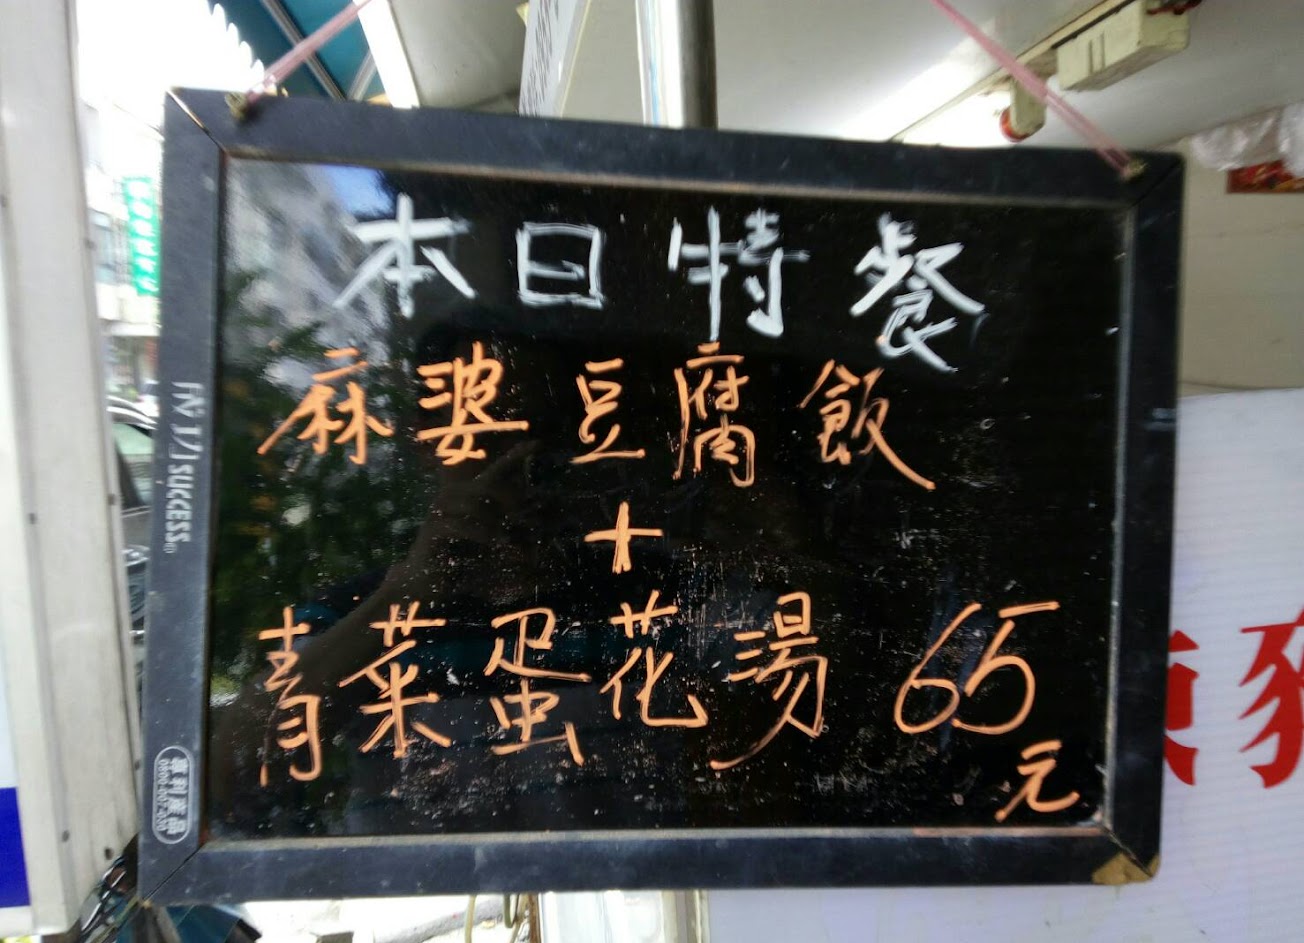 本日特餐
麻婆豆腐飯
+
青菜蛋花湯 65
元
SUCCESS